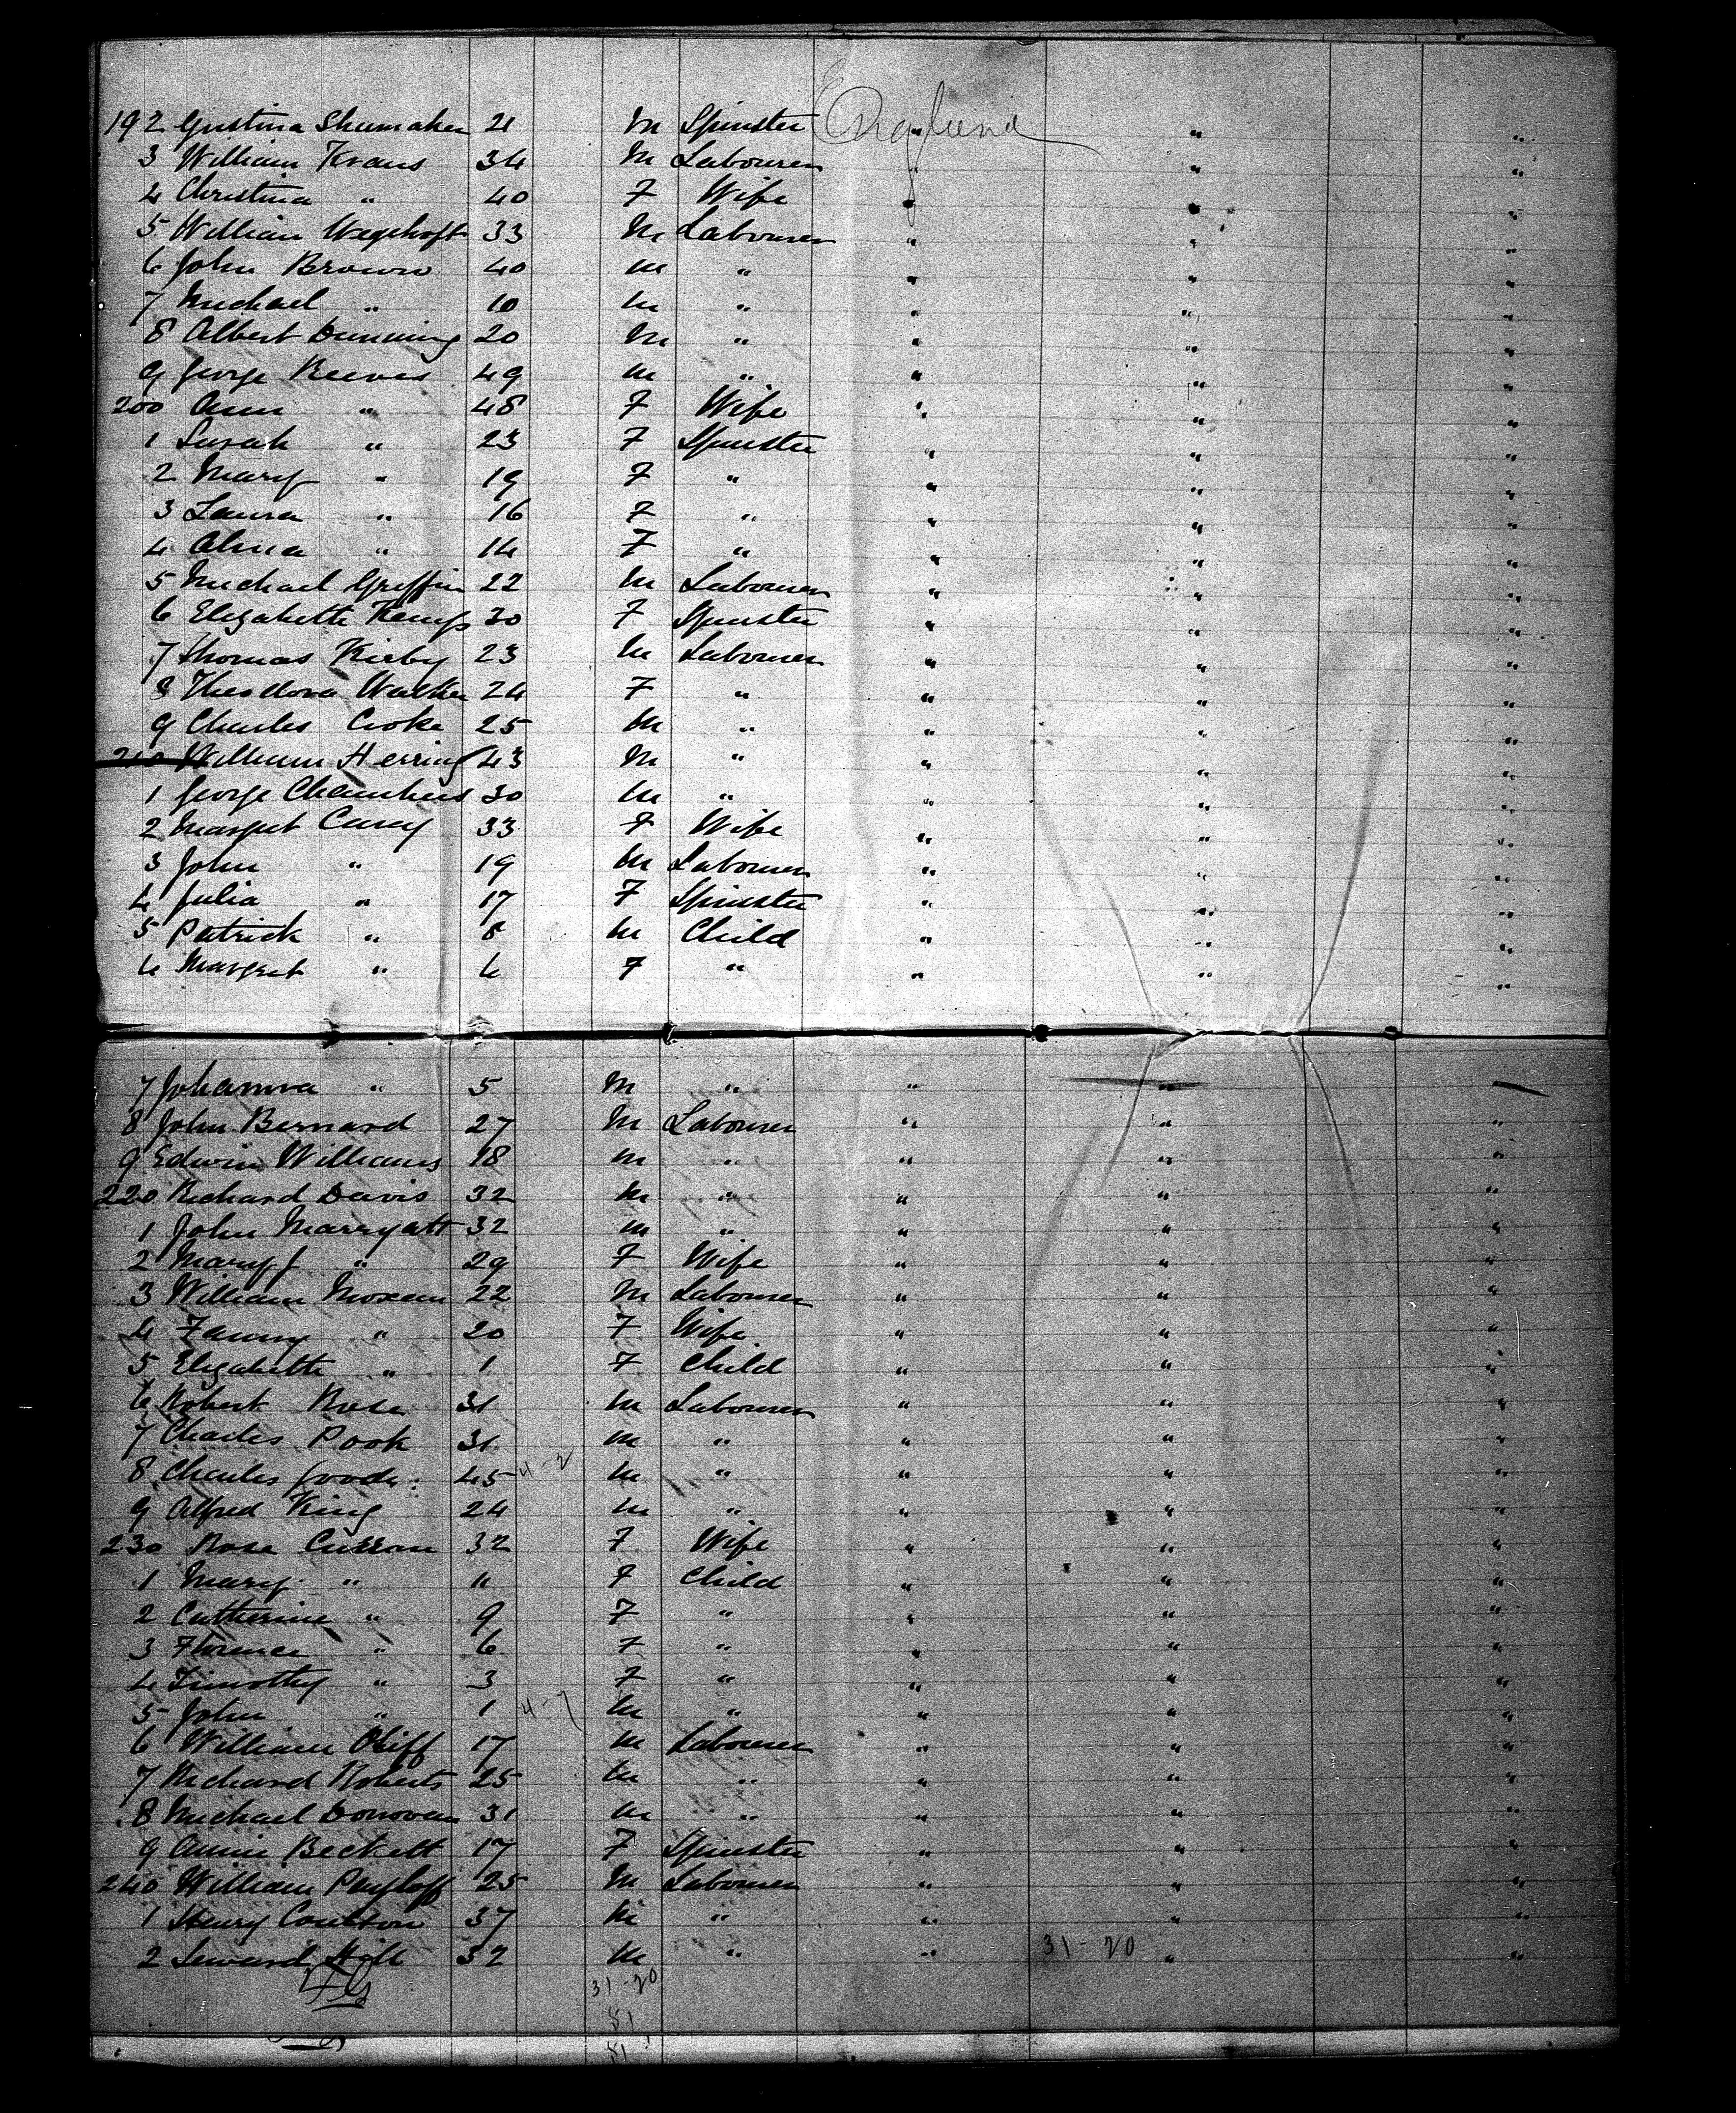 192 Gustina Shumaker 21 M Spinster England " "
3 William Kraus 34 M Labourer " " "
4 Christina " 40 F Wife " " "
5 William Wegehoft 33 M Labourer " " "
6 John Brown 40 M " " " "
7 Michael " 10 M " " " "
8 Albert Dunning 20 M " " " "
9 George Reeves 49 M " " " "
200 Ann " 48 F Wife " " "
1 Sarah " 23 F Spinster " " "
2 Mary " 19 F " " " "
3 Laura " 16 F " " " "
4 Alma " 14 F " " " "
5 Michael Griffin 22 M Labourer " " "
6 Elizabeth Kemp 30 F Spinster " " "
7 Thomas Kirby 23 M Labourer " " "
8 Theodora Walker 24 F " " " "
9 Charles Cooke 25 M " " " "
210 William Herring 43 M " " " "
1 George Chambers 30 M " " " "
2 Margret Carey 33 F Wife " " "
3 John " 19 M Labourer " " "
4 Julia " 17 F Spinster " " "
5 Patrick " 8 M Child " " "
6 Margret " 6 F " " " "
7 Johanna " 5 M " " " "
8 John Bernard 27 M Labourer " " "
9 Edwin Williams 18 M " " " "
220 Richard Davis 32 M " " " "
1 John Marryatt 32 M " " " "
2 Mary J " 29 F Wife " " "
3 William Moxam 22 M Labourer " " "
4 Fanny " 20 F Wife " " "
5 Elizabeth " 1 F Child " " "
6 Robert Rose 31 M Labourer " " "
7 Charles Pook 31 M " " " "
8 Charles Goode 45 4-2 M " " " "
9 Alfred King 24 M " " " "
230 Rose Curran 32 F Wife " " "
1 Mary " 11 F Child " " "
2 Catherine " 9 F " " " "
3 Florence " 6 F " " " "
4 Timothy " 3 F " " " "
5 John " 1 4-7 M " " " "
6 William Oliff 17 M Labourer " " "
7 Richard Roberts 25 M " " " "
8 Michael Donovan 31 M " " " "
9 Annie Beckett 17 F Spinster " " "
240 William 25 M Labourer " " "
1 Henry Coulson 37 M " " " "
2 Hill 32 M " " 31-20 " "
31-20
51
51